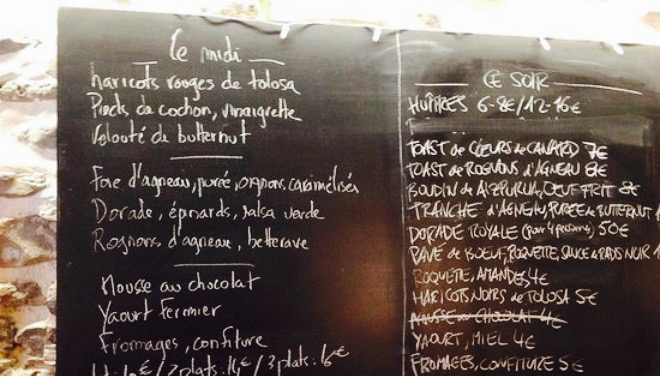 Le midi
haricots rouges de tolosa
Pieds de cochon, vinaigrette
Velouté de butternut
Foie d'agneau, purée, oignons caramélisés
Dorade, épinards, salsa verde
Rognons d'agneau, betterave
Mousse au chocolat
Yaourt Fermier
Fromages, confiture
2 plats: 14€ / 3 plats: 16€
CE SOIR
HUÎTRES 6-8€/12-16€
TOAST de COEURS de CANARD 7€
TOAST de ROGNONS d'AGNEAU 8€
BOUDIN de AIZPURUA, OEUF FRIT 8€
TRANCHE d'AGNEAU, PUREE de BUTTERNUT 1
DORADE ROYALE (pour 4 personnes) 50€
PAVÉ de BOEUF, ROQUETTE, SAUCE de RADIS NOIR 1
ROQUETTE, AMANDES 4€
HARICOTS NOIRS de TOLOSA 5€
MOUSSE au CHOCOLAT 4€
YAOURT, MIEL 4€
FROMAGES, CONFITURE 5€